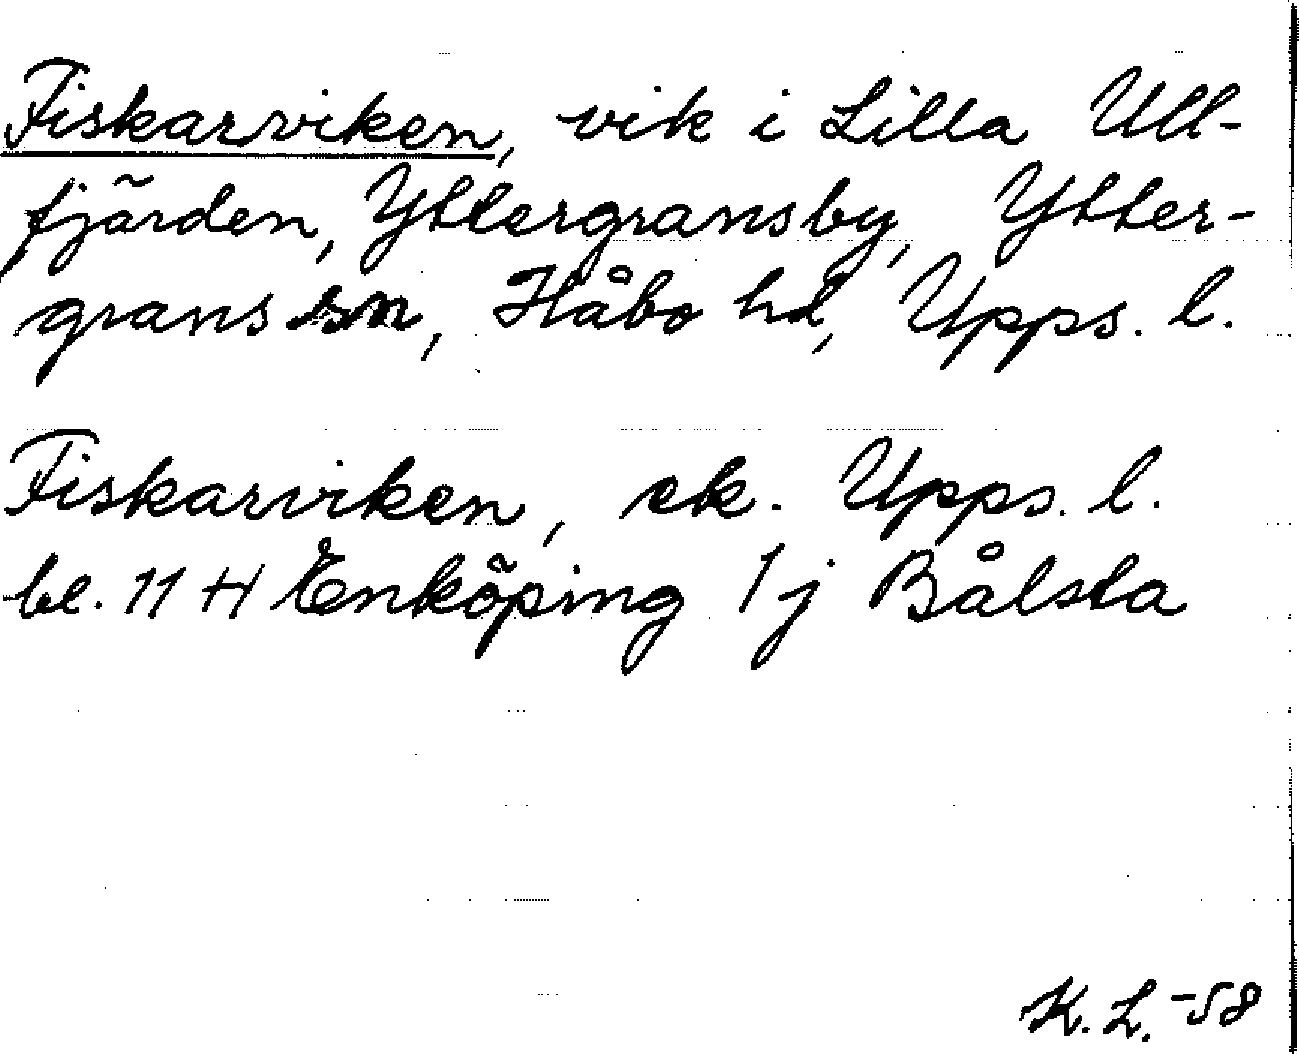 Fiskarviken, vik i Lilla Ull-
fjärden, Yttergransby, Ytter-
grans sn, Håbo hd, Upps. l.
Fiskarviken, ek. Upps. l.
bl. 11 H Enköping 1j Bålsta
K. L. -58